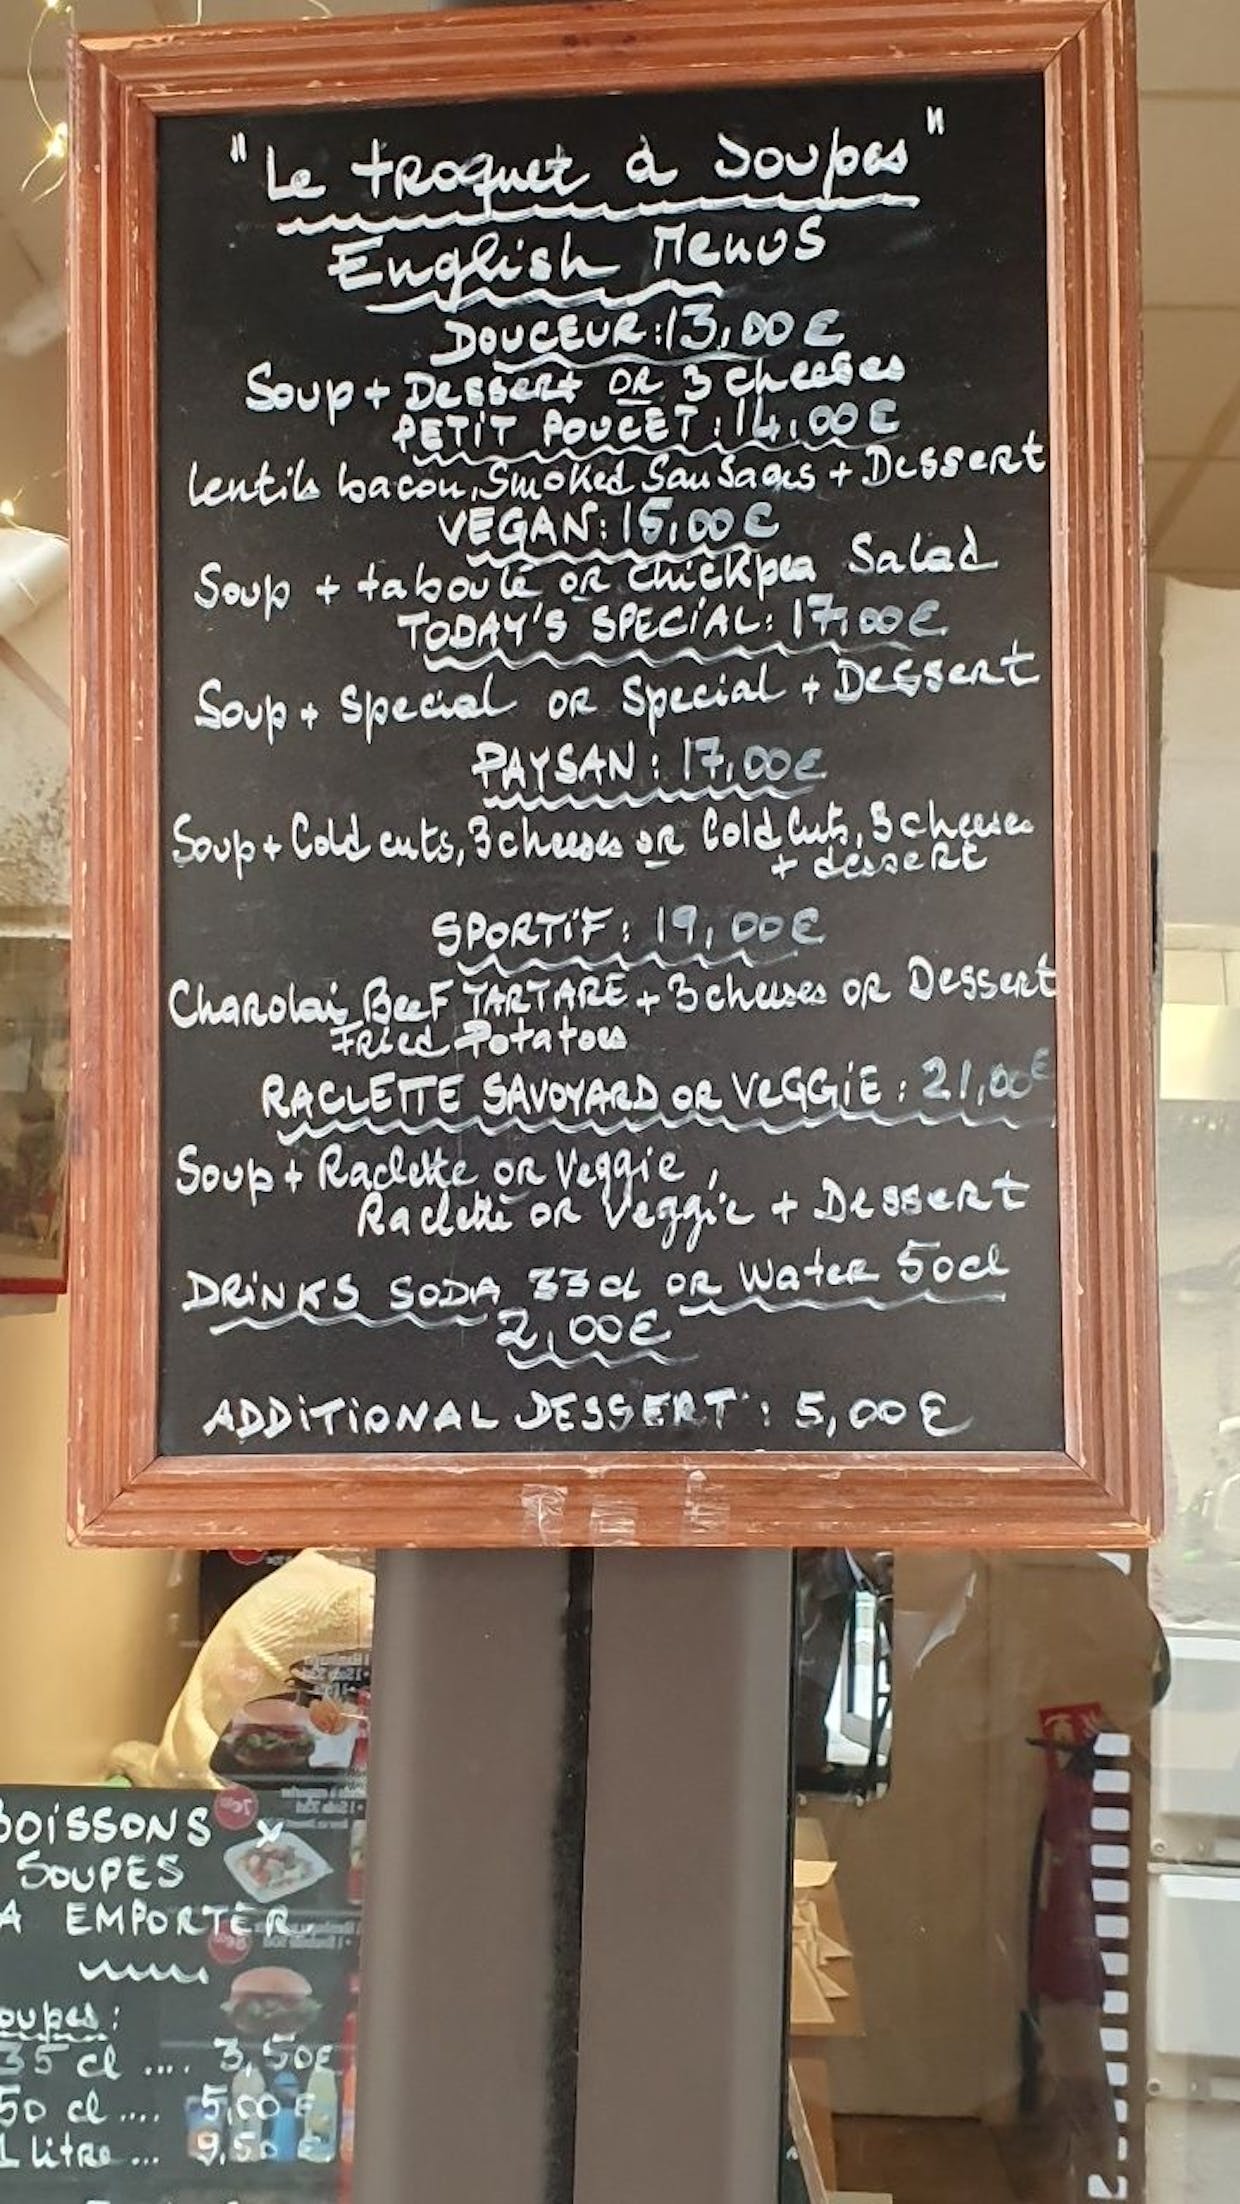 "Le troquet à Soupes"
English Menus
DOUCEUR: 13,00€
Soup + Dessert OR 3 cheeses
PETIT POUCET: 14,00€
Lentils bacon, Smoked Sausages + Dessert
VEGAN: 15,00€
Soup + taboulé OR Chickpea Salad
TODAY'S SPECIAL: 17,00€
Soup + Special OR Special + Dessert
PAYSAN: 17,00€
Soup + Cold cuts, 3 cheeses OR Cold Cuts, 3 cheeses
+ dessert
SPORTIF: 19,00€
Charolai Beef TARTARE + 3 cheeses OR Dessert
Fried Potatoes
RACLETTE SAVOYARD OR VEGGIE: 21,00€
Soup + Raclette OR Veggie,
Raclette OR Veggie + Dessert
DRINKS SODA 33cl OR Water 50cl
2,00€
ADDITIONAL DESSERT: 5,00€
BOISSONS
SOUPES
A EMPORTER.
oupes:
35 cl .... 3,50€
50 cl .... 5,00€
1 litre ... 9,50€